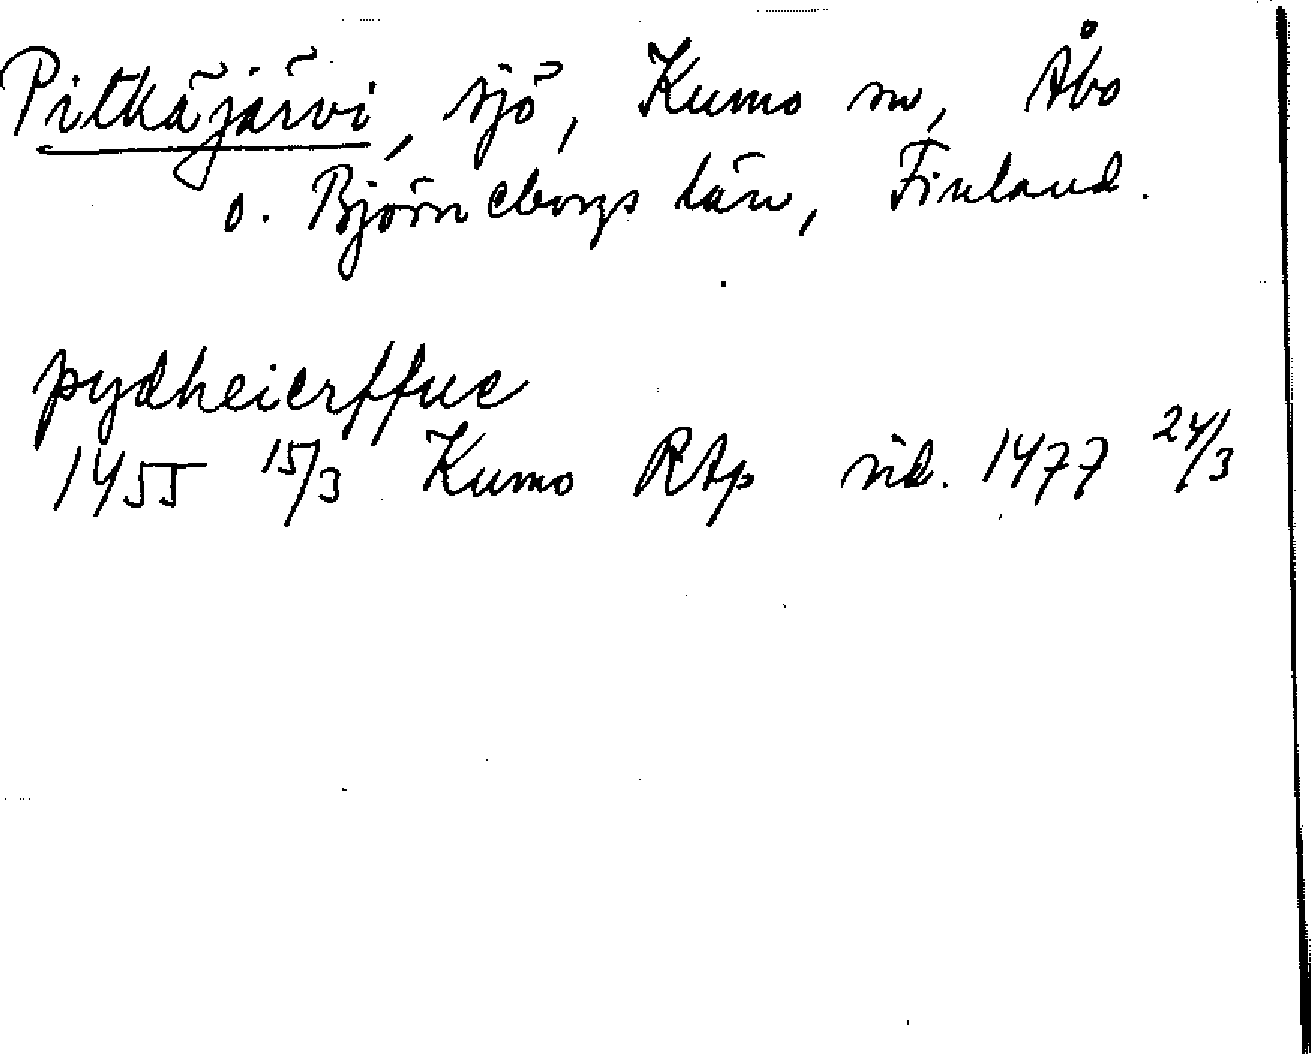 Pitkäjärvi, sjö, Kumo sn, Åbo
o. Björneborgs län, Finland.
pydheierffue
1455 15/3 Kumo RAp vid. 1477 24/3